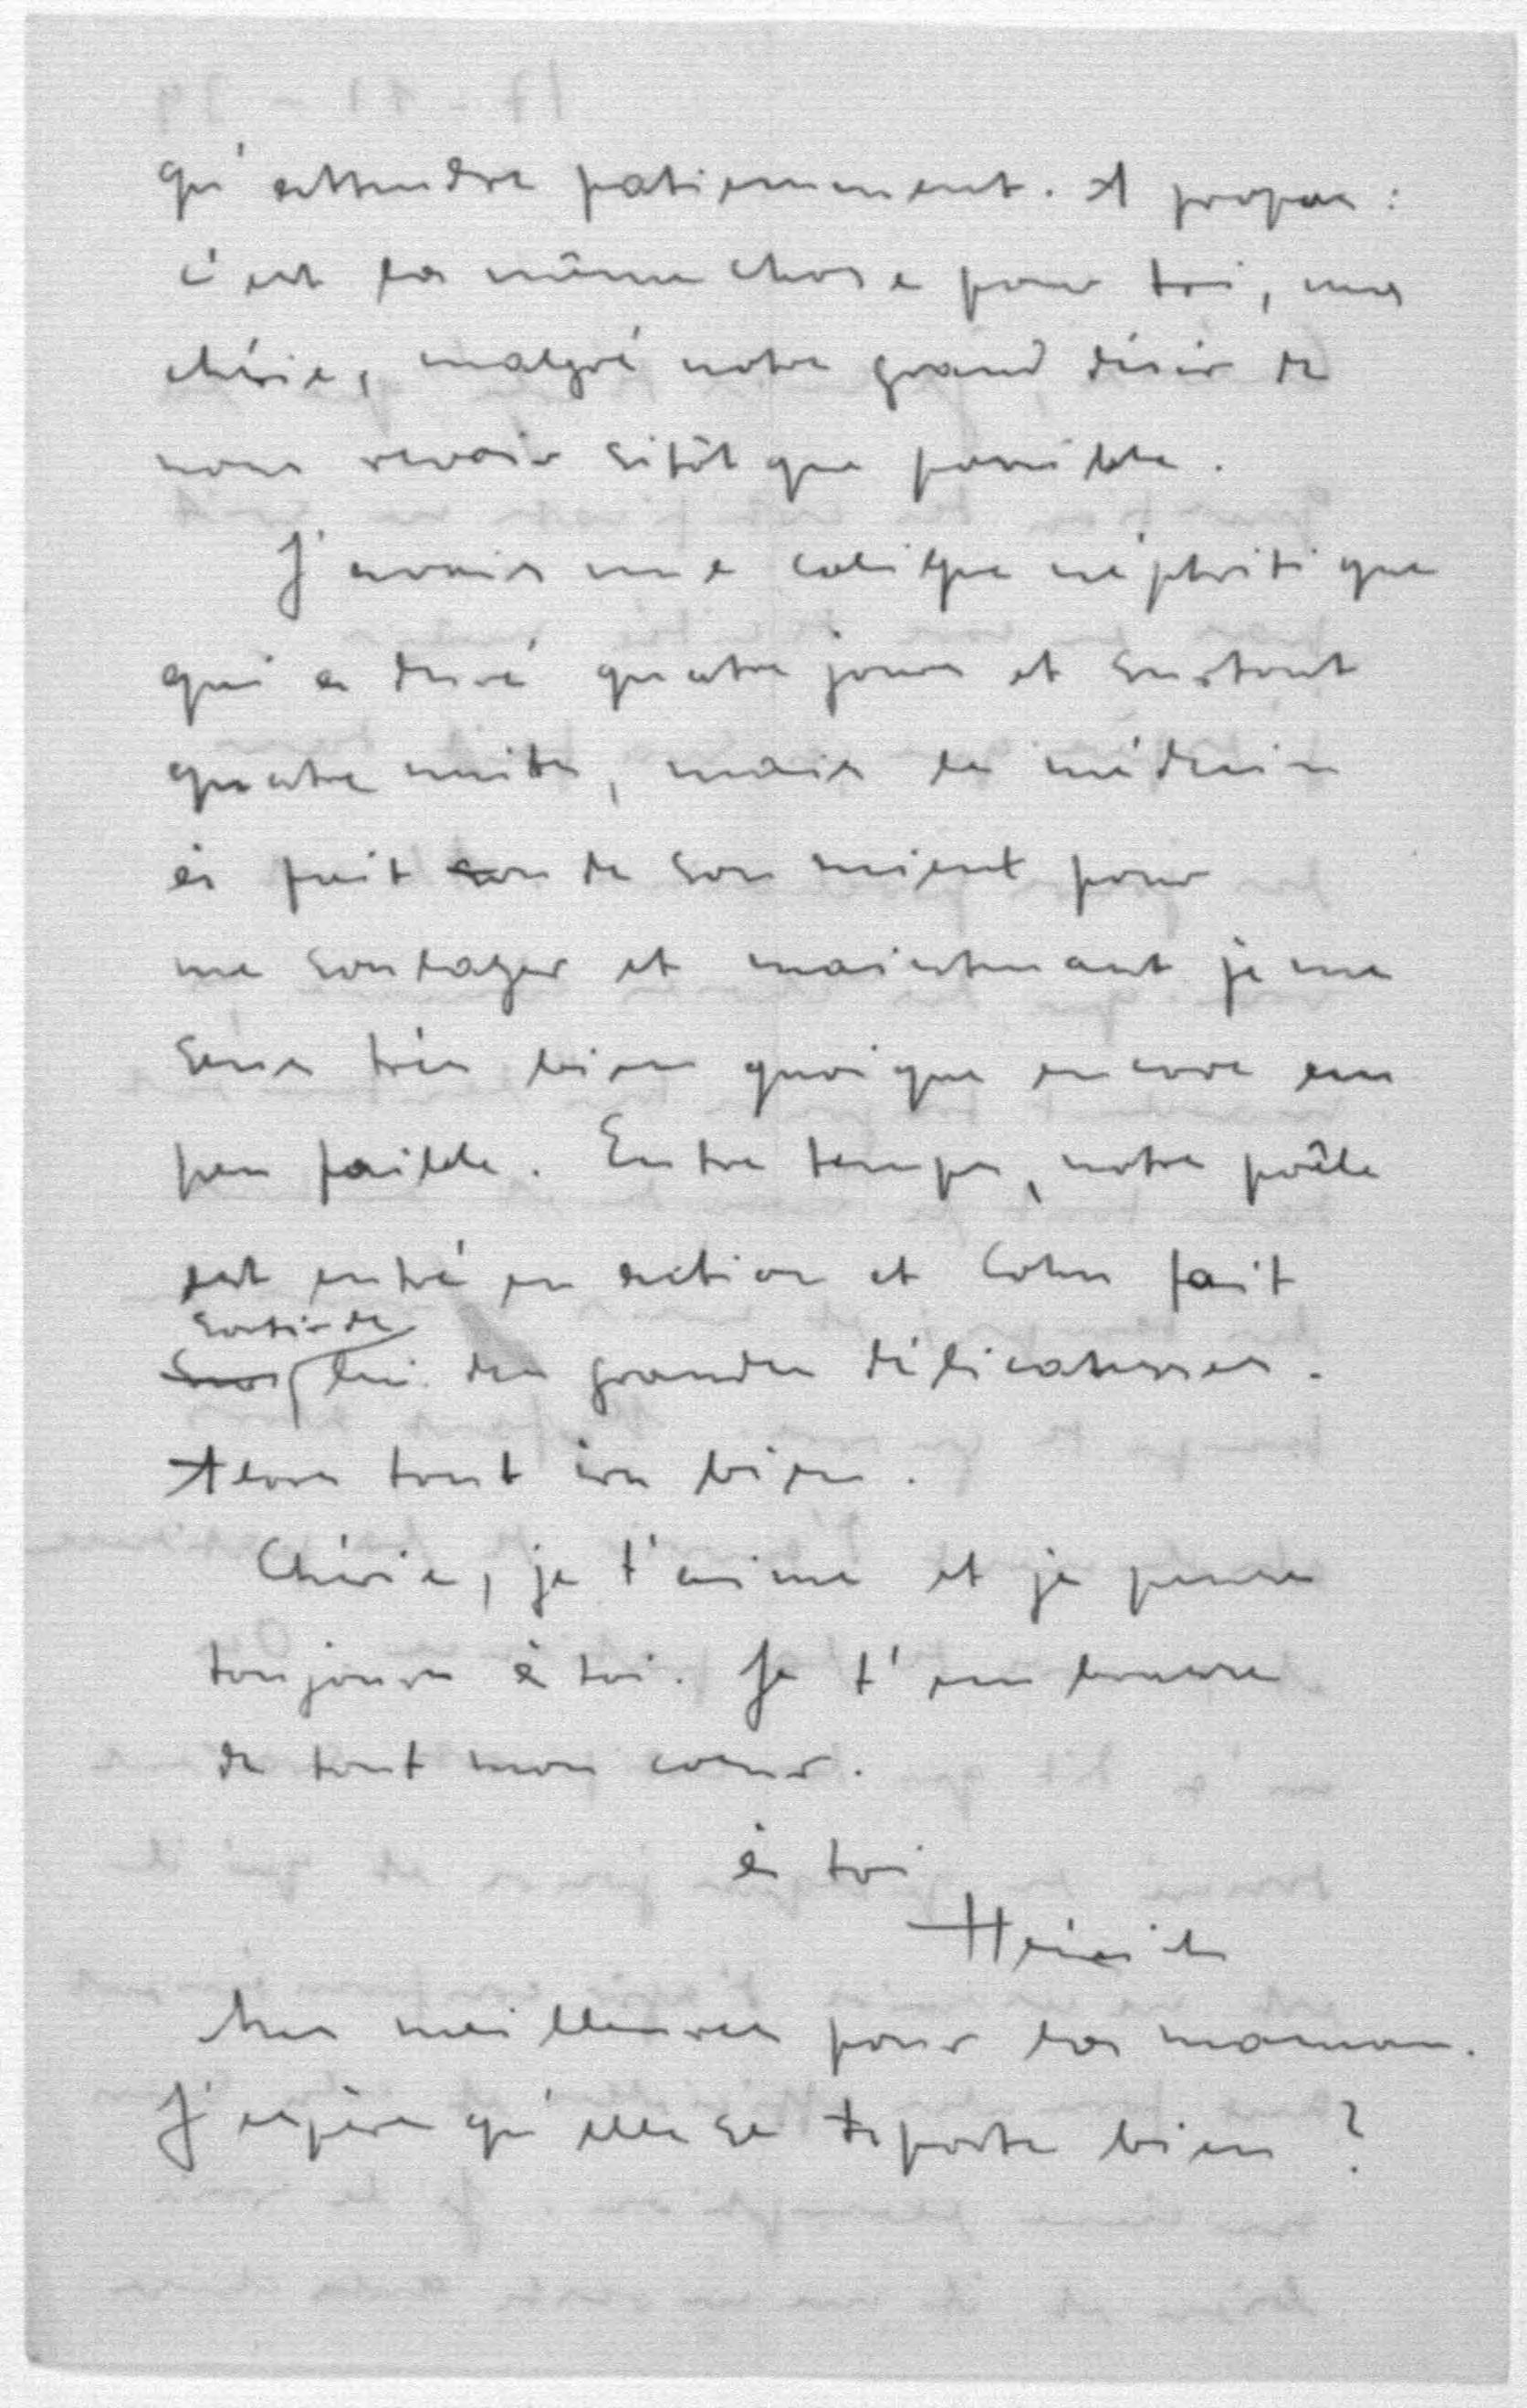 qu'attendre patiemment. A propos :
c'est la même chose pour toi, ma
chérie, malgré notre grand désir de
nous revoir sitôt que possible.
J'avais une colique néphritique
qui a duré quatre jours et surtout
quatre nuits, mais le médecin
a fait son de son mieux pour
me soulager et maintenant je me
sens très bien quoique encore un
peu faible. Entre temps, notre poêle
est entré en action et Cohn fait
sortir de
lui des grandes délicatesses.
Alors tout va bien.
Chérie, je t'aime et je pense
toujours à toi. Je t'embrasse
de tout mon cœur.
à toi
Heinrich
meilleures pour la maman.
J'espère qu'elle se porte bien ?